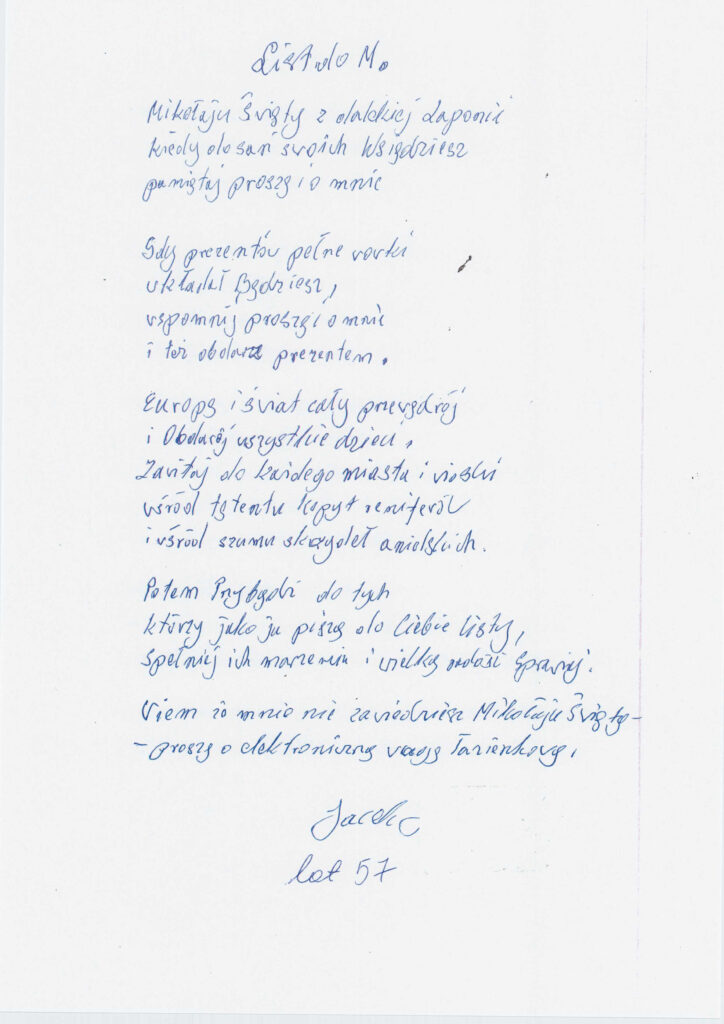 List do M.
Mikołaju Święty z dalekiej Laponii
kiedy do sań swoich Wsiądziesz
pamiętaj proszę i o mnie
Gdy prezentów pełne worki
układał Będziesz,
wspomnij proszę i o mnie
i też obdarz prezentem.
Europę i świat cały przewędrój
i Obdarój wszystkie dzieci,
Zawitaj do każdego miasta i wioski
wśród tętentu kopyt reniferów
i wśród szumu skrzydeł anielskich.
Potem Przybądź do tych
którzy jako ja piszą do Ciebie listy,
Spełnij ich marzenia i wielką radość Spraw
Wiem że mnie nie zawiedziesz Mikołaju Święty-
- proszę o elektroniczną wagę łazienkową,
Jacek
lat 57